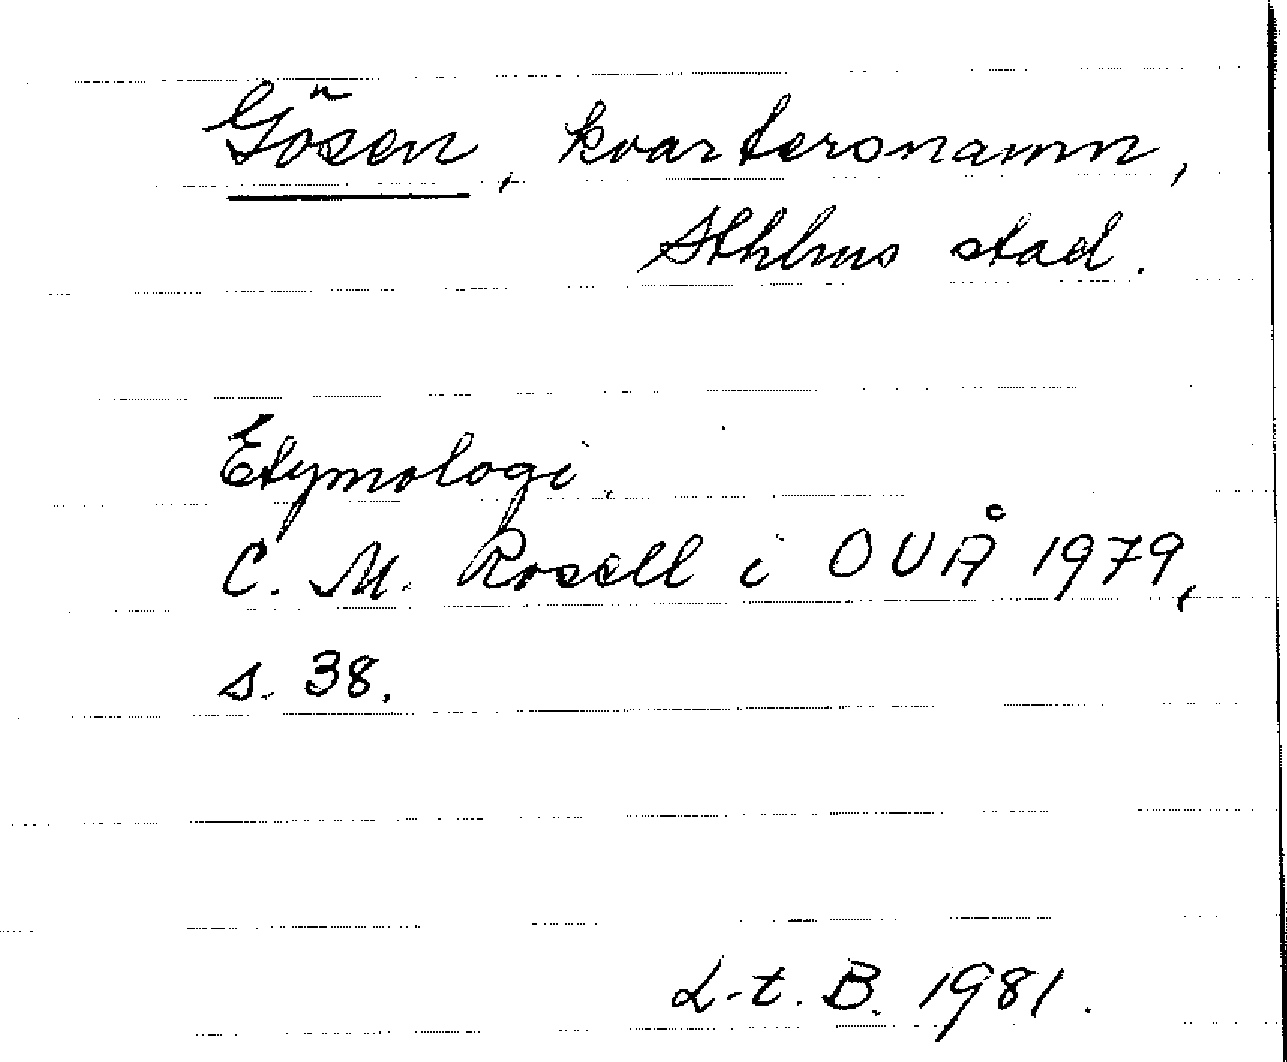 Gösen, kvartersnamn,
Sthlms stad.
Etymologi.
C. M. Rosell i OUÅ 1979,
s. 38.
L-t. B. 1981.